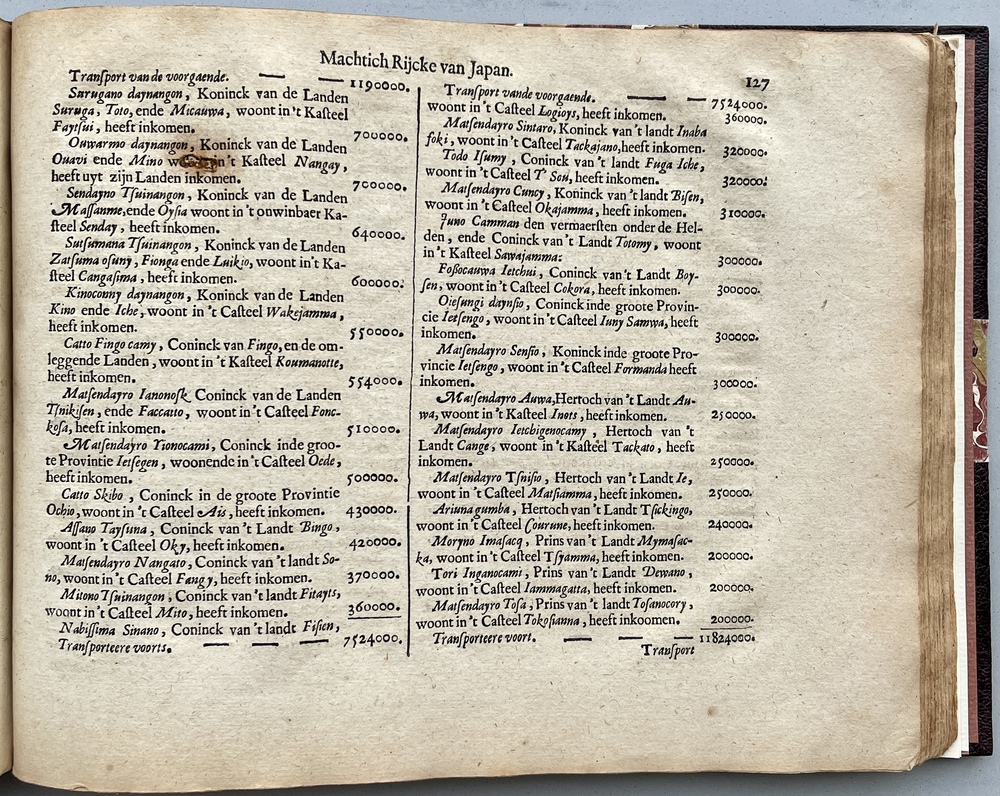 Machtich Rijcke van Japan.
127
Tranſport van de voorgaende. — — 1190000.
Surugano daynangon, Koninck van de Landen
Suruga, Toto, ende Micauwa, woont in't Kaſteel
Faytſui, heeft inkomen. 700000.
Ouwarmo daynangon, Koninck van de Landen
Ouavi ende Mino in't Kaſteel Nangay,
heeft uyt zijn Landen inkomen. 700000.
Sendayno Tſuinangon, Koninck van de Landen
Maſſamne, ende Oyſia woont in't onwinbaer Ka-
ſteel Senday, heeft inkomen. 640000.
Sutſumana Tſuinangon, Koninck van de Landen
Zatſuma oſuny, Fionga ende Luikio, woont in't Ka-
ſteel Cangaſima, heeft inkomen. 600000.
Kinoconny daynangon, Koninck van de Landen
Kino ende Iche, woont in't Caſteel Wakejamma,
heeft inkomen. 550000.
Catto Fingo camy, Coninck van Fingo, en de om-
leggende Landen, woont in't Kaſteel Koumanotte,
heeft inkomen. 554000.
Matſendayro Ianonoſk Coninck van de Landen
Tſnikiſen, ende Faccatto, woont in't Caſteel Fonc-
koſa, heeft inkomen. 510000.
Matſendayro Tionocami, Coninck inde groo-
te Provintie Ietſegen, woonende in't Caſteel Oede,
heeft inkomen. 500000.
Catto Skibo, Coninck in de groote Provintie
Ochio, woont in't Caſteel Ais, heeft inkomen. 430000.
Aſſano Tayſuna, Coninck van't Landt Bingo,
woont in't Caſteel Oky, heeft inkomen. 420000.
Matſendayro Nangato, Coninck van't landt So-
no, woont in't Caſteel Fangy, heeft inkomen. 370000.
Mitono Tſuinangon, Coninck van't landt Fitayts,
woont in't Caſteel Mito, heeft inkomen. 360000.
Nabiſſima Sinano, Coninck van't landt Fiſien,
Tranſporteere voorts. — — — 7524000.
Tranſport vande voorgaende. — — 7524000.
woont in't Caſteel Logioys, heeft inkomen. 360000.
Matſendayro Sintaro, Koninck van't landt Inaba
foki, woont in't Caſteel Tackajano, heeft inkomen. 320000.
Todo Iſumy, Coninck van't landt Fuga Iche,
woont in't Caſteel T' Sou, heeft inkomen. 320000.
Matſendayro Cuncy, Koninck van't landt Biſen,
woont in't Caſteel Okajamma, heeft inkomen. 310000.
Juno Camman den vermaerſten onder de Hel-
den, ende Coninck van't Landt Totomy, woont
in't Kaſteel Sawajamma: 300000.
Foſſocauwa Ietchui, Coninck van't Landt Boy-
ſen, woont in't Caſteel Cokora, heeft inkomen. 300000.
Oieſungi daynſio, Coninck inde groote Provin-
cie Ietſengo, woont in't Caſteel Iuny Samwa, heeft
inkomen. 300000.
Matſendayro Senſio, Koninck inde groote Pro-
vincie Ietſengo, woont in't Caſteel Formanda heeft
inkomen. 300000.
Matſendayro Auwa, Hertoch van't Landt Au-
wa, woont in't Kaſteel Inots, heeft inkomen. 250000.
Matſendayro Ietchigenocamy, Hertoch van't
Landt Cange, woont in't Kaſteel Tackato, heeft
inkomen. 250000.
Matſendayro Tſniſio, Hertoch van't Landt Ie,
woont in't Caſteel Matſiamma, heeft inkomen. 250000.
Ariuna gumba, Hertoch van't Landt Tſickingo,
woont in't Caſteel Courune, heeft inkomen. 240000.
Moryno Imaſacq, Prins van't Landt Mymaſac-
ka, woont in't Caſteel Tſyamma, heeft inkomen. 200000.
Tori Inganocami, Prins van't Landt Dewano,
woont in't Caſteel Iammagatta, heeft inkomen. 200000.
Matſendayro Toſa, Prins van't landt Toſanocory,
woont in't Caſteel Tokoſianna, heeft inkoomen. 200000.
Tranſporteere voort. — — — 11824000.
Tranſport